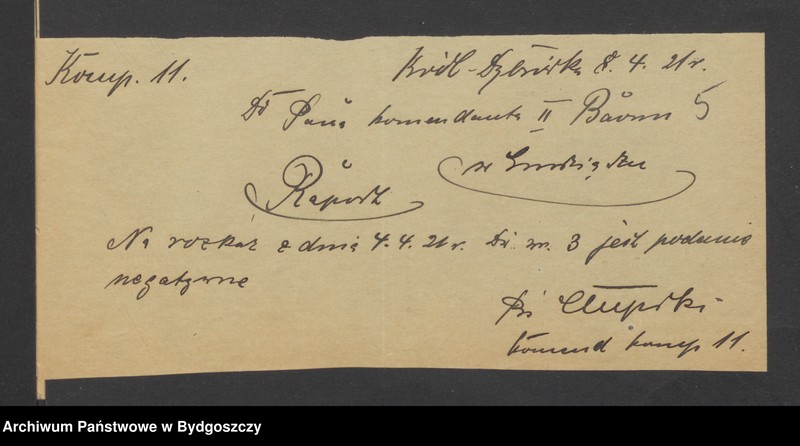 Komp. 11. Król-Dąbrówka 8. 4. 21 r.
Do Pana komendanta II Baonu 5
w Grudziądzu
Raport
Na rozkaz z dnia 4. 4. 21 r. Dz. nr. 3 jest podanie
negatywne
komend komp 11.
Archiwum Państwowe w Bydgoszczy